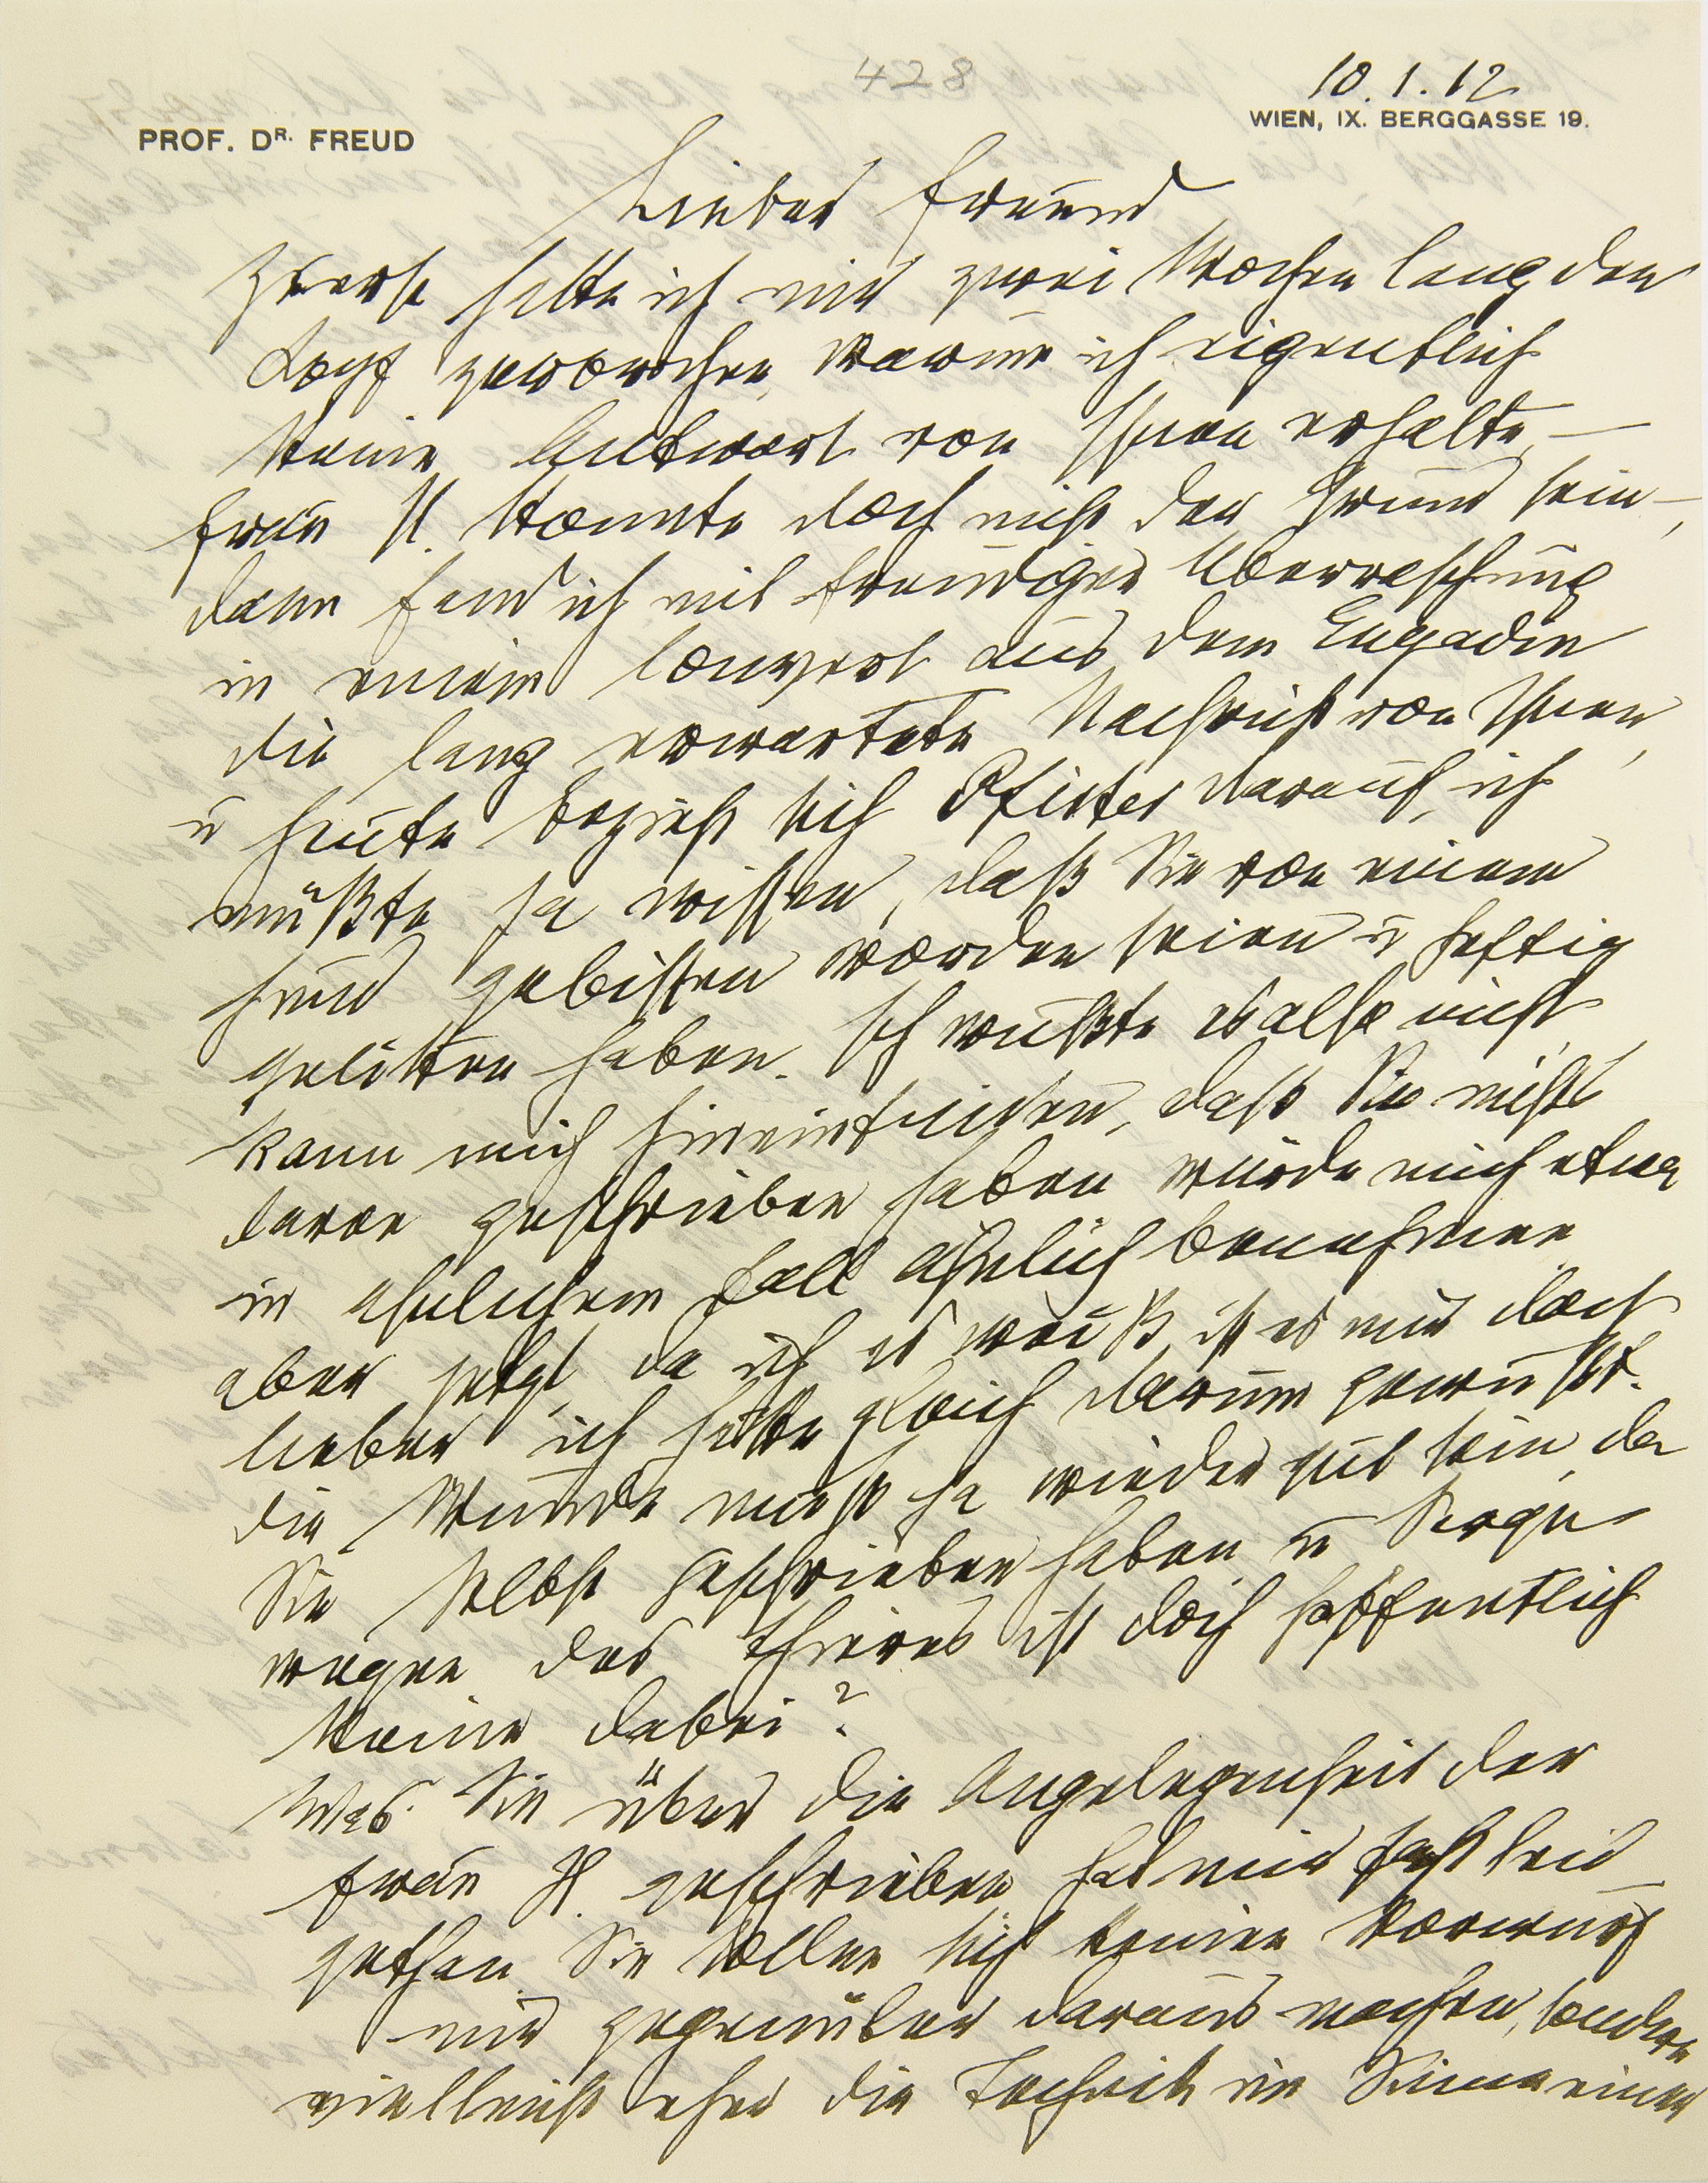 428
10. 1. 12
PROF. DR. FREUD
WIEN, IX. BERGGASSE 19.
Lieber Freund
Zuerst hatte ich mir zwei Wochen lang den
Kopf zerbrochen, warum ich eigentlich
keine Antwort von Ihnen erhalte, –
Frau H. konnte doch nicht der Grund sein –,
dann fand ich mit freudiger Überraschung
in einem Couvert aus dem Engadin
die lang erwartete Nachricht von Ihnen,
u heute bezieht sich Pfister darauf, ich
müßte ja wissen, daß Sie von einem
Hund gebissen worden seien u heftig
gelitten haben. Ich wußte es also nicht,
kann mich hineinfinden, daß Sie nichts
davon geschrieben haben würde mich etwa
in ähnlichem Fall ähnlich benehmen
aber jetzt, da ich es weiß, ist es mir doch
lieber ich hätte gleich darum gewußt.
Die Wunde muß ja wieder gut sein, da
Sie selbst geschrieben haben, u Sorge
wegen des Thieres ist doch hoffentlich
keine dabei?
Was Sie über die Angelegenheit der
Frau H. geschrieben hat mir fast leid
gethan. Sie sollen sich keinen Vorwurf
mir gegenüber daraus machen, sondern
vielleicht eher die Technik im Sinne einer